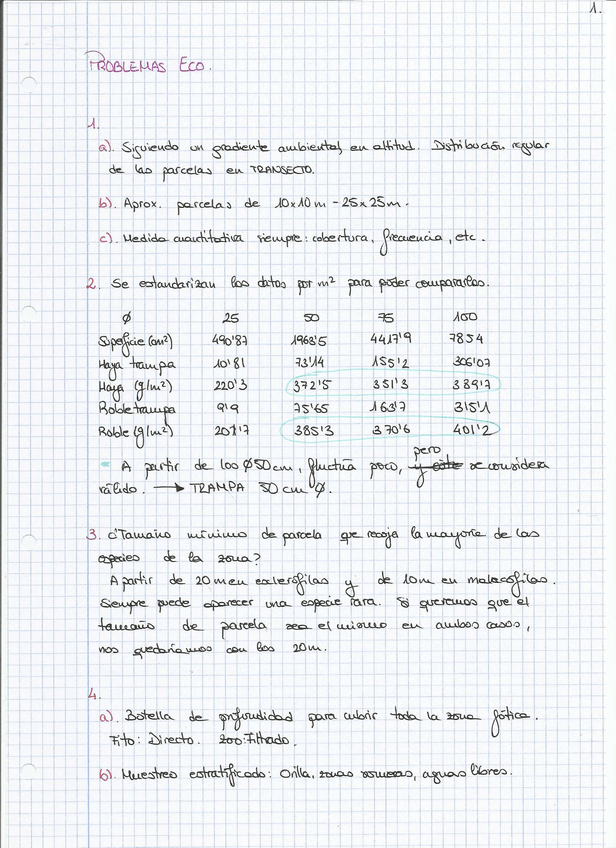 1.
PROBLEMAS ECO.
1.
a). Siguiendo un gradiente ambiental, en altitud. Distribución regular
de las parcelas en TRANSECTO.
b). Aprox. parcelas de 10x10m - 25x25m.
c). Medida cuantitativa siempre: cobertura, frecuencia, etc.
2. Se estandarizan los datos por m² para poder compararlos.
Ø 25 50 75 100
Superficie (cm²) 490'87 1963'5 4417'9 7854
Haya trampa 10'81 73'14 155'2 306'07
Haya (g/m²) 220'3 372'5 351'3 389'7
Roble trampa 9'9 75'65 163'7 315'1
Roble (g/m²) 201'7 385'3 370'6 401'2
A partir de los Ø 50 cm, fluctúa poco, y este pero se considera
válido. → TRAMPA 50 cm Ø.
3. ¿Tamaño mínimo de parcela que recoja la mayoría de las
especies de la zona?
A partir de 20m en esclerófilas y de 10m en malacófilas.
Siempre puede aparecer una especie rara. Si queremos que el
tamaño de parcela sea el mismo en ambos casos,
nos quedaríamos con los 20m.
4.
a). Botella de profundidad para cubrir toda la zona fótica.
Fito: Directo. Zoo: Filtrado.
b). Muestreo estratificado: Orilla, zonas someras, aguas libres.